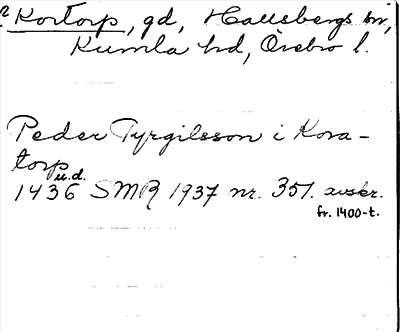 Kortorp, gd, Hallsbergs sn,
Kumla hd, Örebro l.
Peder Tyrgilsson i Kora-
torp
u.d.
1436 SMR 1937 nr. 351. avskr.
fr. 1400-t.